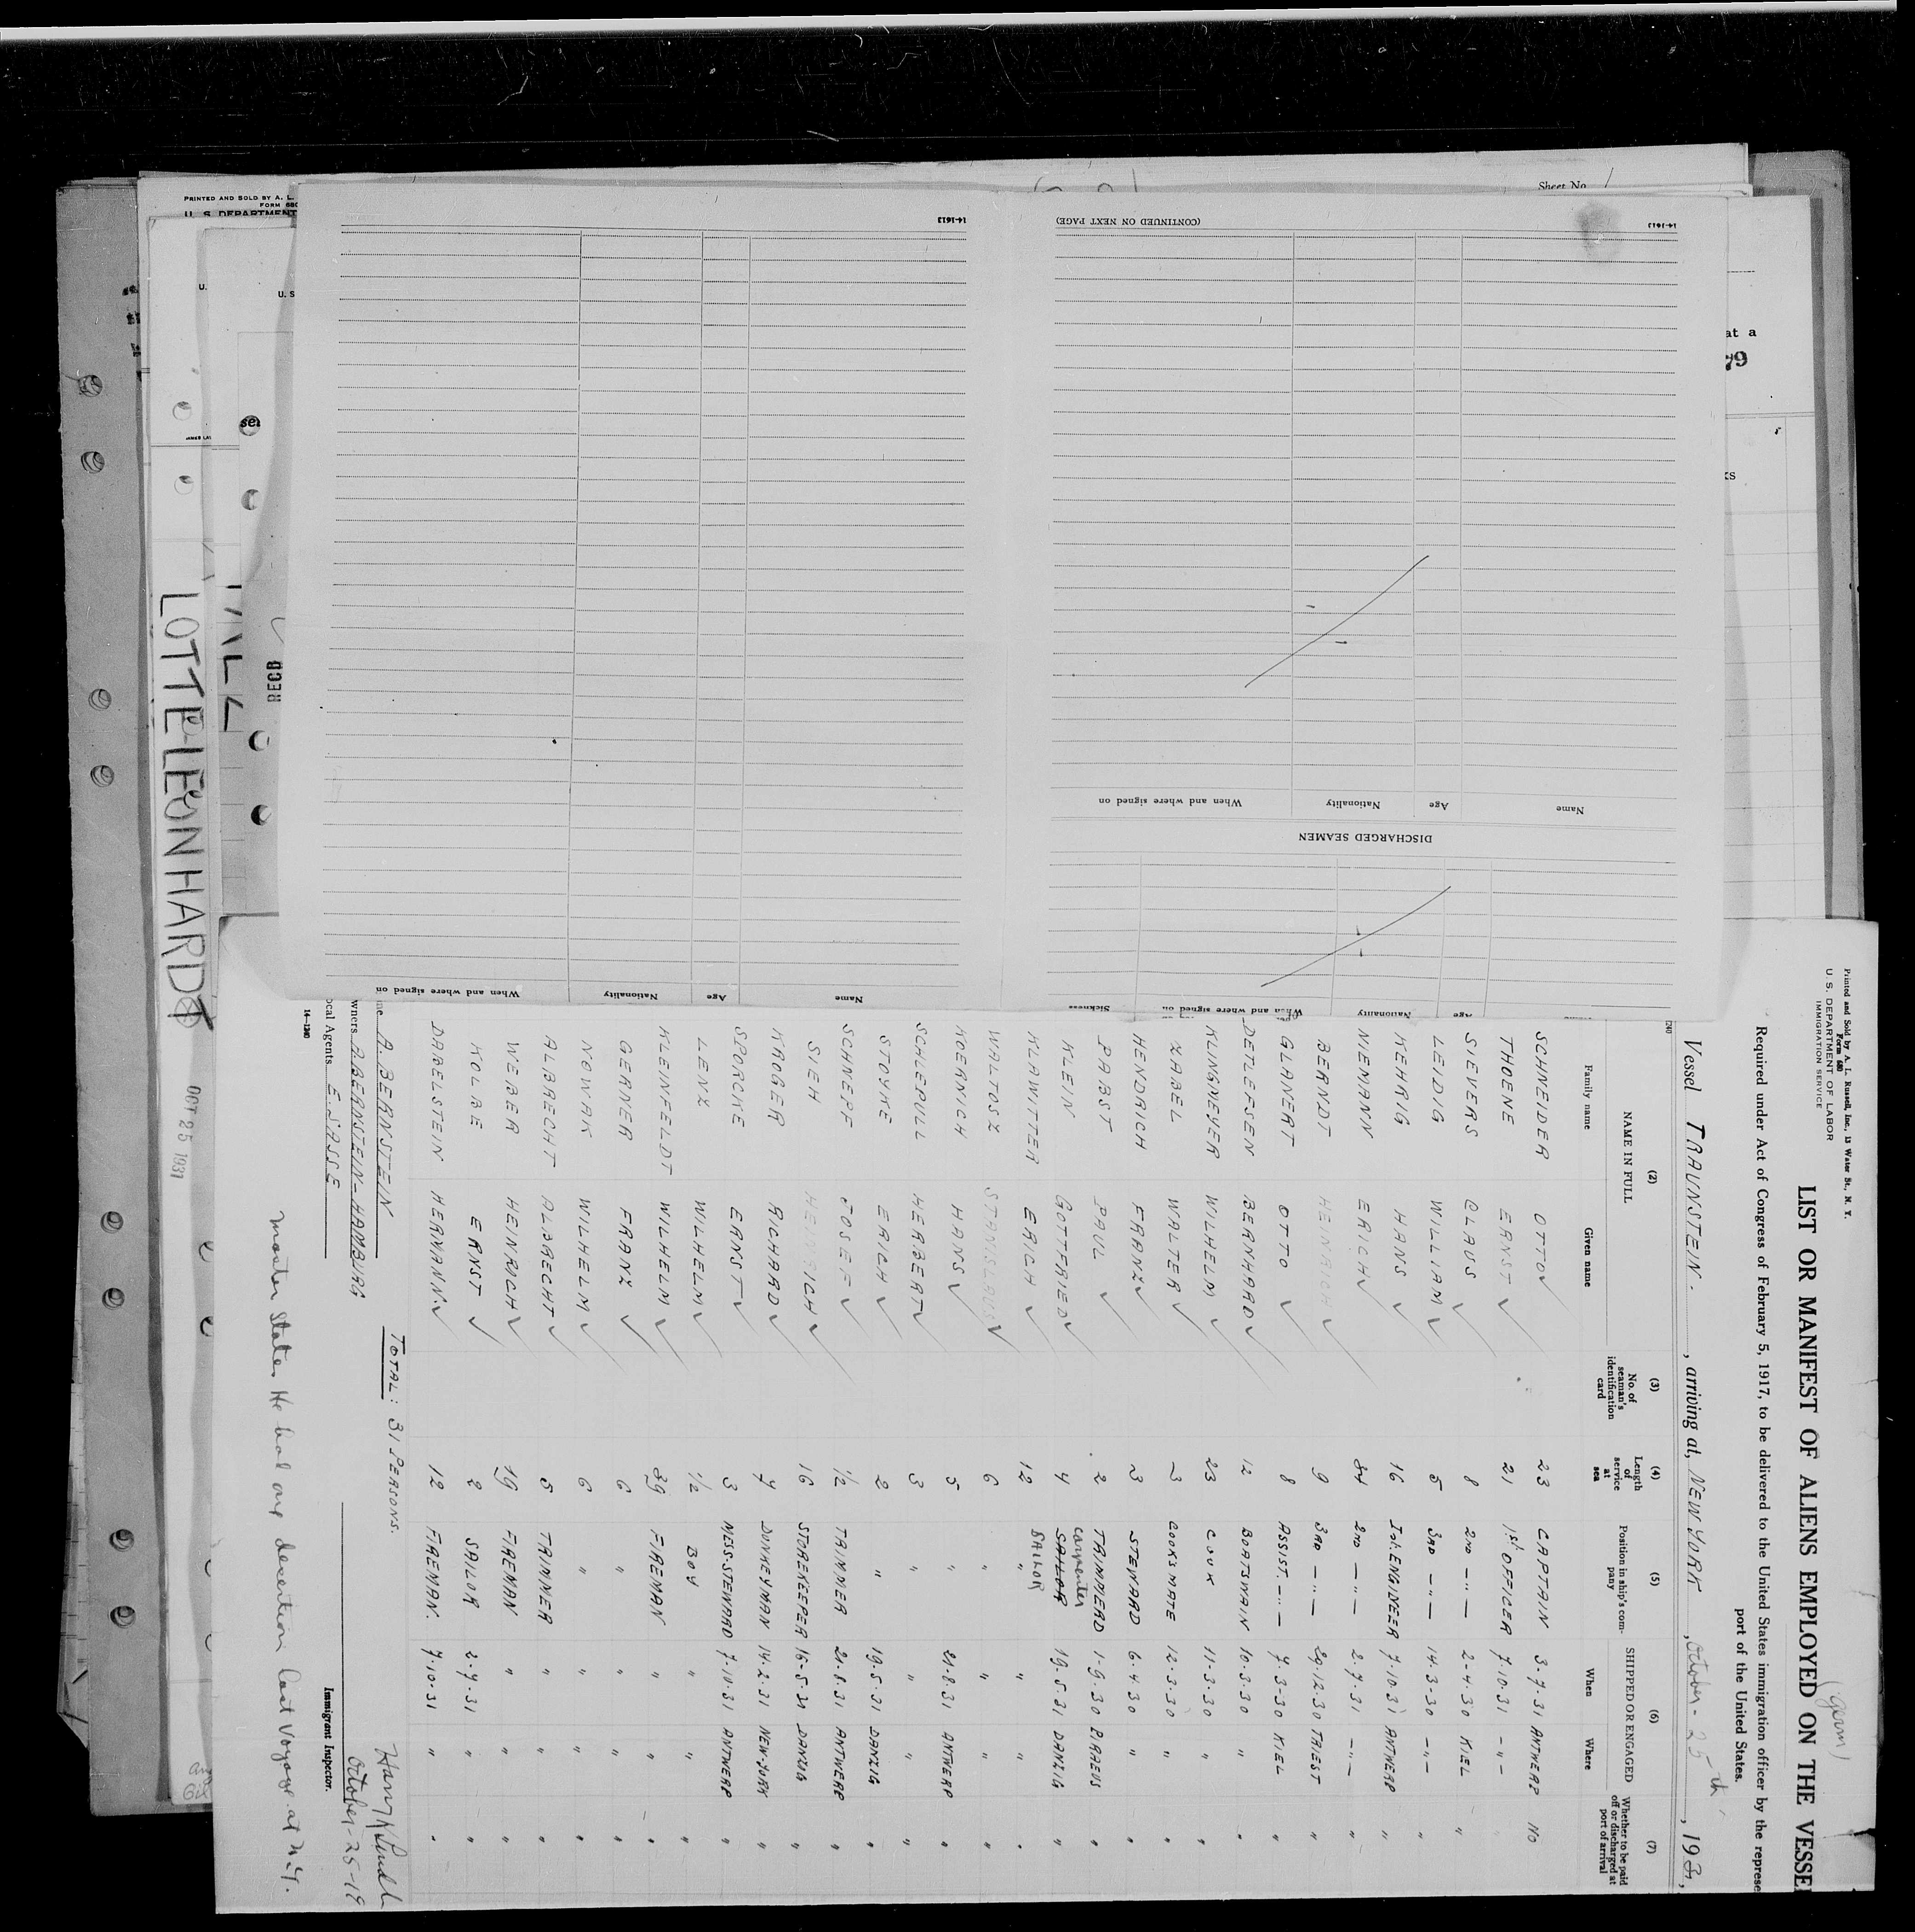 Sheet No. 1
PRINTED AND SOLD BY A. L.
FORM 680
U. S. DEPARTMENT
U.
U. S
at a
LOTTE LEONHARDT
OCT 25 1931
RECD
14-1613
(CONTINUED ON NEXT PAGE)
14-1613
Name Age Nationality When and where signed on
DISCHARGED SEAMEN
Name Age Nationality When and where signed on
Age Nationality When and where signed on Sickness
Printed and Sold by A. L. Russell, Inc., 13 Water St., N. Y.
Form 680
U. S. DEPARTMENT OF LABOR
IMMIGRATION SERVICE
(germ)
LIST OR MANIFEST OF ALIENS EMPLOYED ON THE VESSEL
Required under Act of Congress of February 5, 1917, to be delivered to the United States immigration officer by the represe
port of the United States.
Vessel TRAUNSTEIN. , arriving at NEW YORK , October - 25th , 1931,
(2) (3) (4) (5) (6) (7)
NAME IN FULL No. of seaman's identification card Length of service at sea Position in ship's company SHIPPED OR ENGAGED Whether to be paid off or discharged at port of arrival
Family name Given name When Where
SCHNEIDER OTTO 23 CAPTAIN 3.7.31 ANTWERP NO
THOENE ERNST 21 1st OFFICER 7.10.31 -"- "
SIEVERS CLAUS 8 2ND -"- 2-4.30 KIEL "
LEIDIG WILLIAM 5 3RD -"- 14.3-30 -"- "
KEHRIG HANS 16 1st. ENGINEER 7.10.31 ANTWERP "
WEMANN ERICH 2ND -"- 2.7.31 -"- "
BERNDT HEINRICH 9 3RD -"- 29.12.30 TRIEST "
GLANERT OTTO 8 ASSIST. -"- 7.3-30 KIEL "
DETLEFSEN BERNHARD 12 BOATSWAIN 10.3.30 " "
KLINGMEYER WILHELM 23 COOK 11-3.30 " "
ZABEL WALTER 3 COOK'S MATE 12-3-30 " "
HENDRICH FRANZ 3 STEWARD 6.4.30 " "
PABST PAUL 2 TRIMMERD 1-9.30 PIRAEUS "
KLEIN GOTTFRIED 4 SAILOR carpenter 19.5.31 DANZIG "
KLAWITTER ERICH 12 " SAILOR " " "
WALTOSZ STANISLAUS 6 " " " "
KOERNICH HANS 5 " 21.8.31 ANTWERP "
SCHLEPULL HERBERT 3 " " " "
STOYKE ERICH 2 " 19.5.31 DANZIG "
SCHNEPF JOSEF 1/2 TRIMMER 21.8.31 ANTWERP "
SIEH HEINRICH 16 STOREKEEPER 16-5.31 DANZIG "
KROGER RICHARD 4 DONKEYMAN 14.2.31 NEW-YORK "
SPORCKE ERNST 3 MESS-STEWARD 7-10.31 ANTWERP "
LENZ WILHELM 1/2 BOY " " "
KLEINFELDT WILHELM 39 FIREMAN " " "
GERNER FRANZ 6 " " " "
NOWAK WILHELM 6 " " " "
ALBRECHT ALBRECHT 5 TRIMMER " " "
WEBER HEINRICH 19 FIREMAN " " "
KOLBE ERNST 2 SAILOR 2.7.31 " "
DABELSTEIN HERMANN. 12 FIREMAN. 7.10.31 " "
TOTAL: 31 PERSONS.
A. BERNSTEIN
wners A. BERNSTEIN-HAMBURG
ocal Agents E. SASSE
14-1240
October-25-19
Immigrant Inspector.
Master States He had one desertion last Voyage at N.Y.